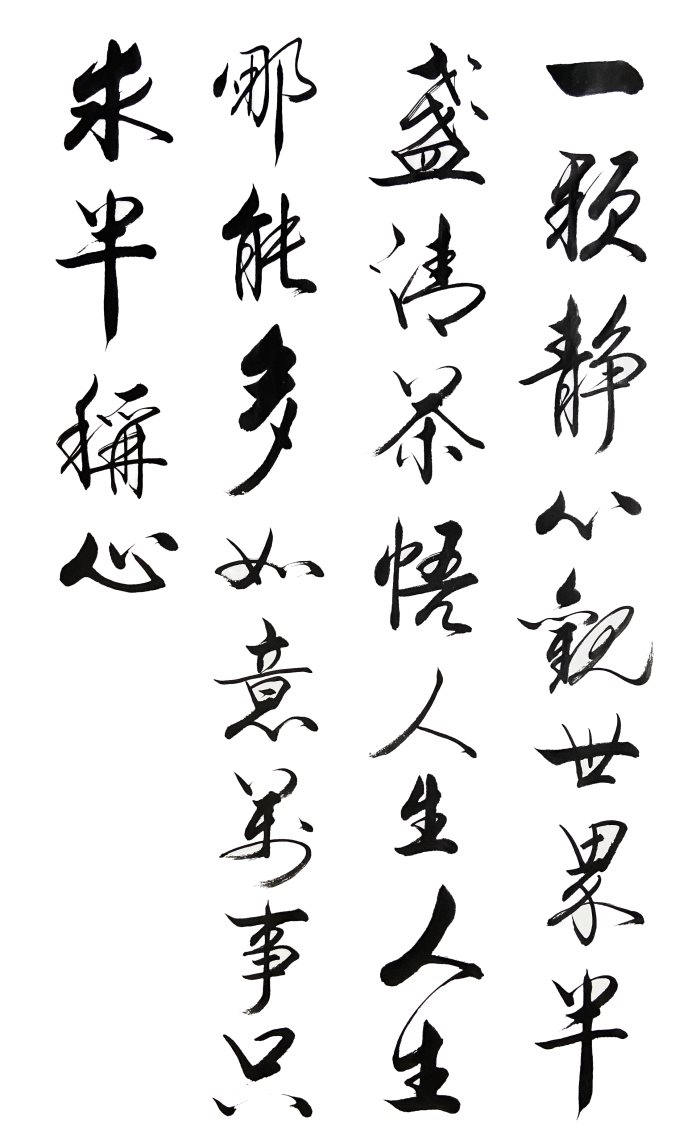 一颗静心觀世界半
盏清茶悟人生人生
哪能多如意萬事只
求半稱心